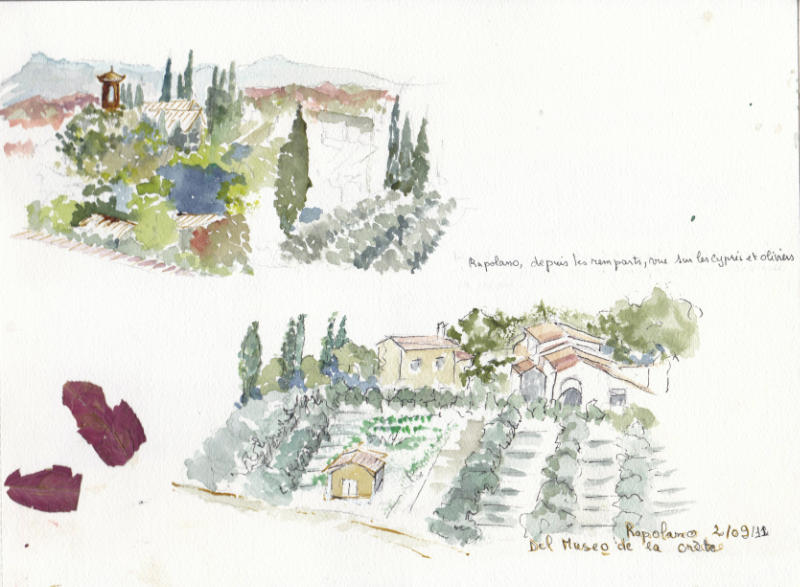 Rapolano, depuis les remparts, vue sur les cyprès et oliviers
Rapolano 2/09/11
Del Museo de la crète